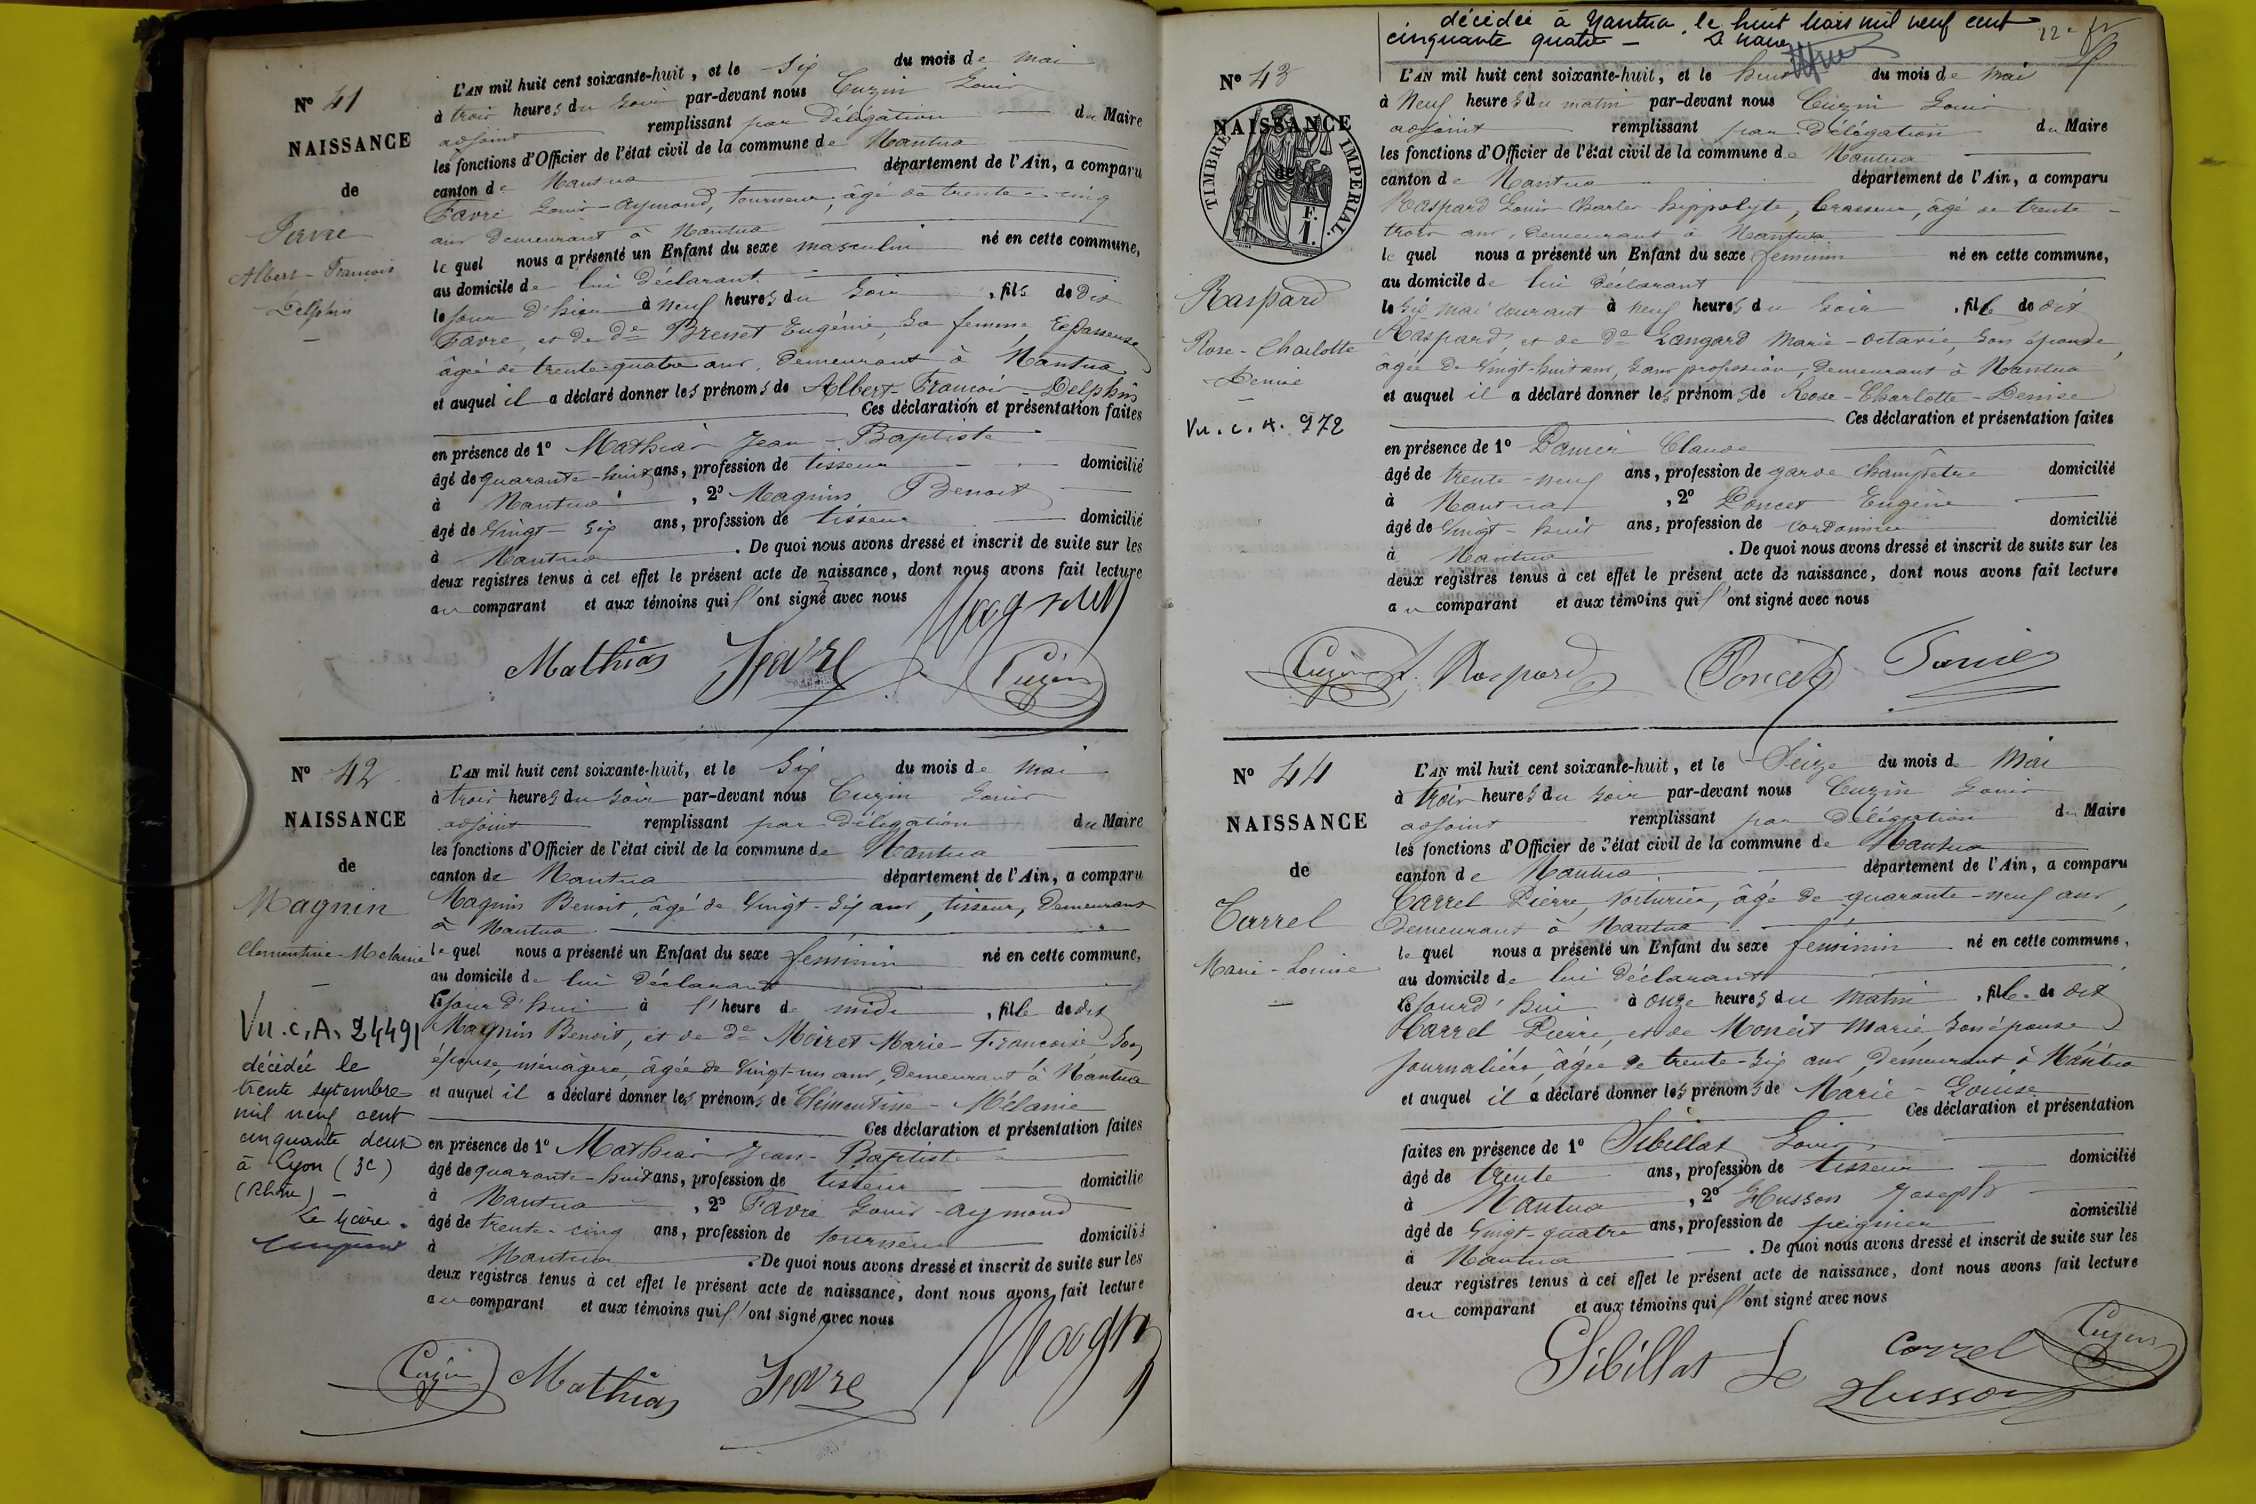 N° 41
NAISSANCE
de
Favre
Albert-François
Delphin
L'AN mil huit cent soixante-huit, et le Six du mois de Mai
à trois heures du Soir par-devant nous Cuzin Louis
adjoint remplissant par Délégation du Maire
les fonctions d'Officier de l'état civil de la commune de Nantua
canton de Nantua département de l'Ain, a comparu
Favre Louis-Aymond, tourneur, âgé de trente-cinq
ans demeurant à Nantua
lequel nous a présenté un Enfant du sexe masculin né en cette commune,
au domicile de lui déclarant
le jour d'hier à neuf heures du Soir, fils de dit
Favre, et de De Brunet Eugénie, Sa femme, Repasseuse
âgée de trente-quatre ans, demeurant à Nantua
et auquel il a déclaré donner les prénoms de Albert-François-Delphin
Ces déclaration et présentation faites
en présence de 1° Mathias Jean-Baptiste
âgé de quarante-huit ans, profession de tisseur domicilié
à Nantua, 2° Magnin Benoit
âgé de Vingt-Six ans, profession de tisseur domicilié
à Nantua. De quoi nous avons dressé et inscrit de suite sur les
deux registres tenus à cet effet le présent acte de naissance, dont nous avons fait lecture
au comparant et aux témoins qui l'ont signé avec nous
Magnin
Mathias Favre Cuzin
N° 42
NAISSANCE
de
Magnin
Clementine-Melanie
Vu.C.A. 24491
décédée le
trente septembre
mil neuf cent
cinquante deux
à Lyon (3e)
(Rhône) -
Le Maire.
L'AN mil huit cent soixante-huit, et le Six du mois de Mai
à trois heures du Soir par-devant nous Cuzin Louis
adjoint remplissant par Délégation du Maire
les fonctions d'Officier de l'état civil de la commune de Nantua
canton de Nantua département de l'Ain, a comparu
Magnin Benoit, âgé de Vingt-Six ans, tisseur, Demeurant
à Nantua
lequel nous a présenté un Enfant du sexe féminin né en cette commune,
au domicile de lui déclarant
ce jourd'hui à l'heure de midi, fille de dit
Magnin Benoit, et de De Moiret Marie-Françoise, Son
épouse, ménagère, âgée de Vingt-un ans, Demeurant à Nantua
et auquel il a déclaré donner les prénoms de Clémentine-Mélanie
Ces déclaration et présentation faites
en présence de 1° Mathias Jean-Baptiste
âgé de quarante-huit ans, profession de tisseur domicilié
à Nantua, 2° Favre Louis-Aymond
âgé de trente-cinq ans, profession de tourneur domicilié
à Nantua. De quoi nous avons dressé et inscrit de suite sur les
deux registres tenus à cet effet le présent acte de naissance, dont nous avons fait lecture
au comparant et aux témoins qui l'ont signé avec nous
Cuzin Mathias Favre Magnin
décédée à Nantua, le huit Mars mil neuf cent
cinquante quatre - Le Maire
N° 43
NAISSANCE
de
TIMBRE IMPERIAL.
F.
1.
Raspard
Rose-Charlotte
Denise
Vu.C.A. 972
L'AN mil huit cent soixante-huit, et le huit du mois de Mai
à Neuf heures du matin par-devant nous Cuzin Louis
adjoint remplissant par Délégation du Maire
les fonctions d'Officier de l'état civil de la commune de Nantua
canton de Nantua département de l'Ain, a comparu
Raspard Louis-Charles-Hippolyte, brasseur, âgé de trente-
trois ans, demeurant à Nantua
lequel nous a présenté un Enfant du sexe féminin né en cette commune,
au domicile de lui déclarant
le Six Mai courant à neuf heures du Soir, fille de dit
Raspard, et de De Langard Marie-Octavie, Son épouse,
âgée de Vingt-huit ans, Sans profession, Demeurant à Nantua
et auquel il a déclaré donner les prénoms de Rose-Charlotte-Denise
Ces déclaration et présentation faites
en présence de 1° Claude
âgé de trente-neuf ans, profession de garde Champêtre domicilié
à Nantua, 2° Poncet Eugène
âgé de Vingt-huit ans, profession de cordonnier domicilié
à Nantua. De quoi nous avons dressé et inscrit de suite sur les
deux registres tenus à cet effet le présent acte de naissance, dont nous avons fait lecture
au comparant et aux témoins qui l'ont signé avec nous
Cuzin Raspard Poncet
N° 44
NAISSANCE
de
Carrel
Marie-Louise
L'AN mil huit cent soixante-huit, et le Seize du mois de Mai
à trois heures du soir par-devant nous Cuzin Louis
adjoint remplissant par Délégation du Maire
les fonctions d'Officier de l'état civil de la commune de Nantua
canton de Nantua département de l'Ain, a comparu
Carrel Pierre, Voiturier, âgé de quarante-neuf ans,
Demeurant à Nantua
lequel nous a présenté un Enfant du sexe féminin né en cette commune,
au domicile de lui déclarant
ce jourd'hui à onze heures du matin, fille de dit
Carrel Pierre, et de Moneit Marie Son épouse
journalière, âgée de trente-Six ans, demeurant à Nantua
et auquel il a déclaré donner les prénoms de Marie-Louise
Ces déclaration et présentation
faites en présence de 1° Sibillat Louis,
âgé de trente ans, profession de tisseur domicilié
à Nantua, 2° Husson Joseph
âgé de Vingt-quatre ans, profession de peignier domicilié
à Nantua. De quoi nous avons dressé et inscrit de suite sur les
deux registres tenus à cet effet le présent acte de naissance, dont nous avons fait lecture
au comparant et aux témoins qui l'ont signé avec nous
Sibillat Carrel Cuzin
Husson